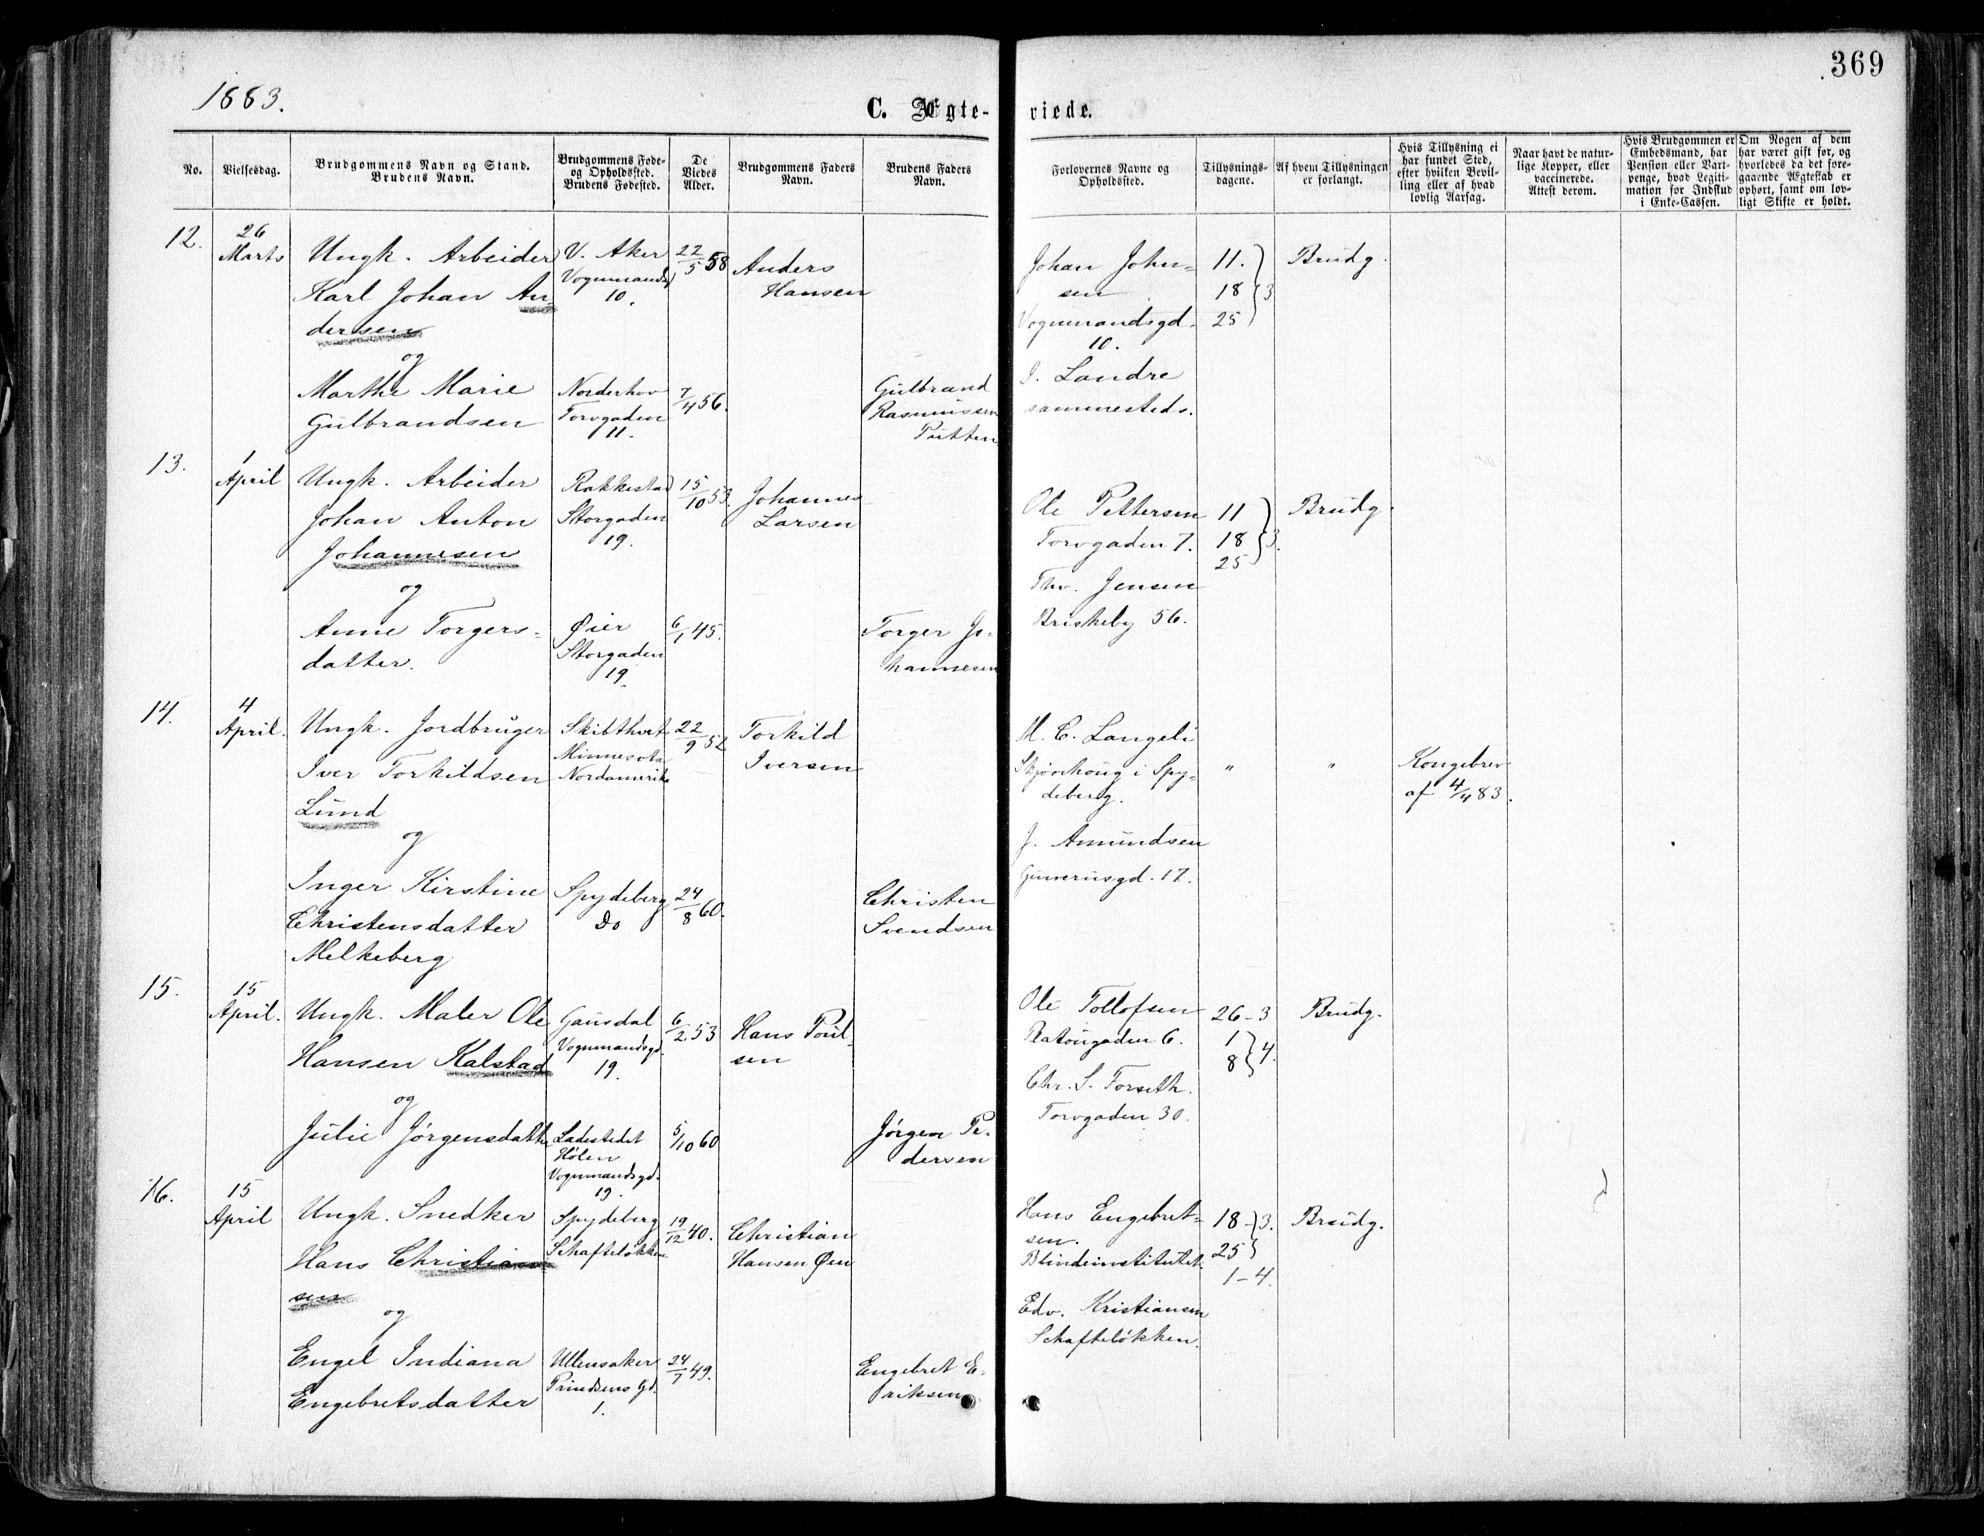 369
1883.
C. Ægte-viede.
No.
Vielsesdag.
Brudgommens Navn og Stand.
Brudens Navn.
Brudgommens Føde-
og Opholdssted.
Brudens Fødested.
De
Viedes
Alder.
Brudgommens Faders
Navn.
Brudens Faders
Navn.
Forlovernes Navne og
Opholdssted.
Tillysnings-
dagene.
Af hvem Tillysningen
er forlangt.
Hvis Tillysning ei
har fundet Sted,
efter hvilken Bevil-
ling eller af hvad
lovlig Aarsag.
Naar havt de natur-
lige Kopper, eller
vaccinerede.
Attest derom.
Hvis Brudgommen er
Embedsmand, har
Pension eller Vart-
penge, hvad Legiti-
mation for Indskud
i Enke-Cassen.
Om Nogen af dem
har været gift før, og
hvorledes da det fore-
gaaende Ægteskab er
ophørt, samt om lov-
ligt Skifte er holdt.
12.
26
Marts
Ungk. Arbeider
Karl Johan An-
dersen
og
Marthe Marie
Gulbrandsen
V. Aker
Vognmandsg
10.
Norderhov
Torvgaden
11.
22/5 58
7/4 56.
Anders
Hansen
Gulbrand
Rasmussen
Putten
Johan John-
sen
Vognmandsgd.
10.
J. Landre
sammesteds.
11.
18 } 3
25
Brudg.
13.
1
April
Ungk. Arbeider
Johan Anton
Johannesen
og
Anne Torgers-
datter.
Rakkestad
Storgaden
19.
Øier
Storgaden
19.
15/10 53.
6/1 45.
Johannes
Larsen
Torger Jo-
hannesen
Ole Pettersen
Torvgaden 7.
Thv. Jensen
Briskeby 56.
11
18 } 3.
25
Brudg.
14.
4
April.
Ungk. Jordbruger
Iver Torkildsen
Lund
og
Inger Kirstine
Christensdatter
Melkeberg
Skibthvet
Minnesota
Nordamerika
Spydeberg
Do
22/9 52
24/8 60.
Torkild
Iversen
Christen
Svendsen
M. C. Langeli
Skjøvhoug i Spy-
deberg.
J. Amundsen
Gunerusgd. 17.
"
"
Kongebrev
af 4/4 83.
15.
15
April.
Ungk. Maler Ole
Hansen Kalstad
og
Julie Jørgensdatter
Gausdal
Vognmandsgd.
19.
Ladestedet
Hølen
Vognmandsgd.
19.
6/2 53
5/10 60
Hans Poul-
sen
Jørgen Pe-
dersen
Ole Tollofsen
Ratougaden 6.
Chr. S. Forseth.
Torvgaden 30.
26-3
1
8 } 4.
Brudg.
16.
15
April
Ungk. Snedker
Hans Christian-
sen
og
Engel Indiana
Engebretsdatter
Spydeberg
Schafteløkken
Ullensaker
Prindsens Gd.
1.
19/12 40.
24/7 49.
Christian
Hansen Øen
Engebret E-
riksen
Hans Engebret-
sen.
Blindeinstitutet.
Edv. Kristiansen
Schafteløkken.
18 - } 3.
25
1-4.
Brudg.